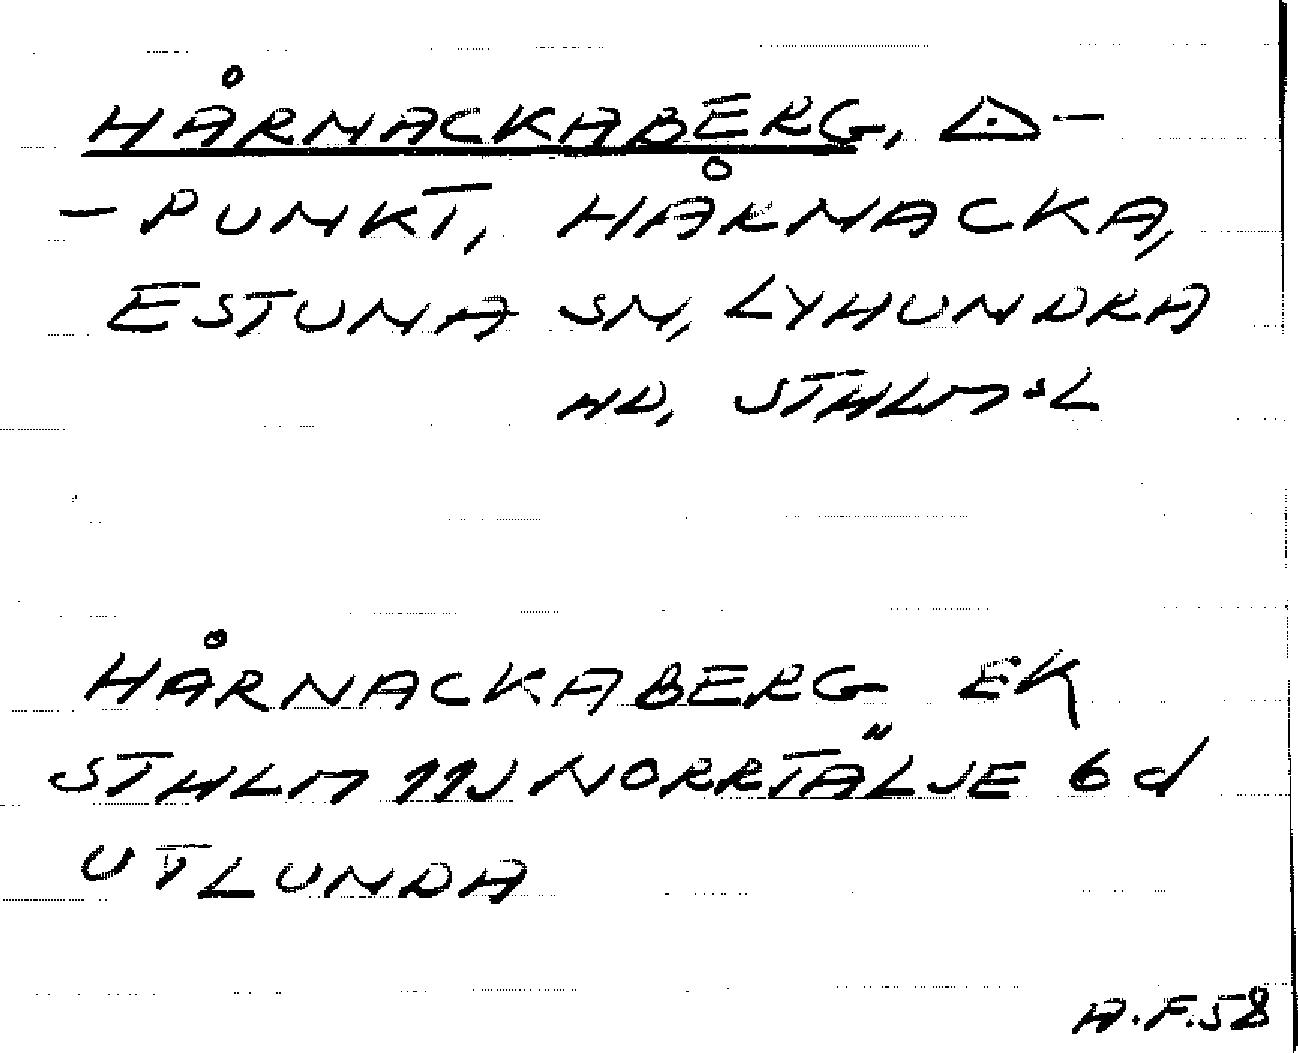 HÅRNACKABERG, ◬-
-PUNKT, HÅRNACKA,
ESTUNA SN, LYHUNDRA
HD, STHLMSL
HÅRNACKABERG EK
STHLM 11J NORRTÄLJE 6d
UTLUNDA
A.F.58